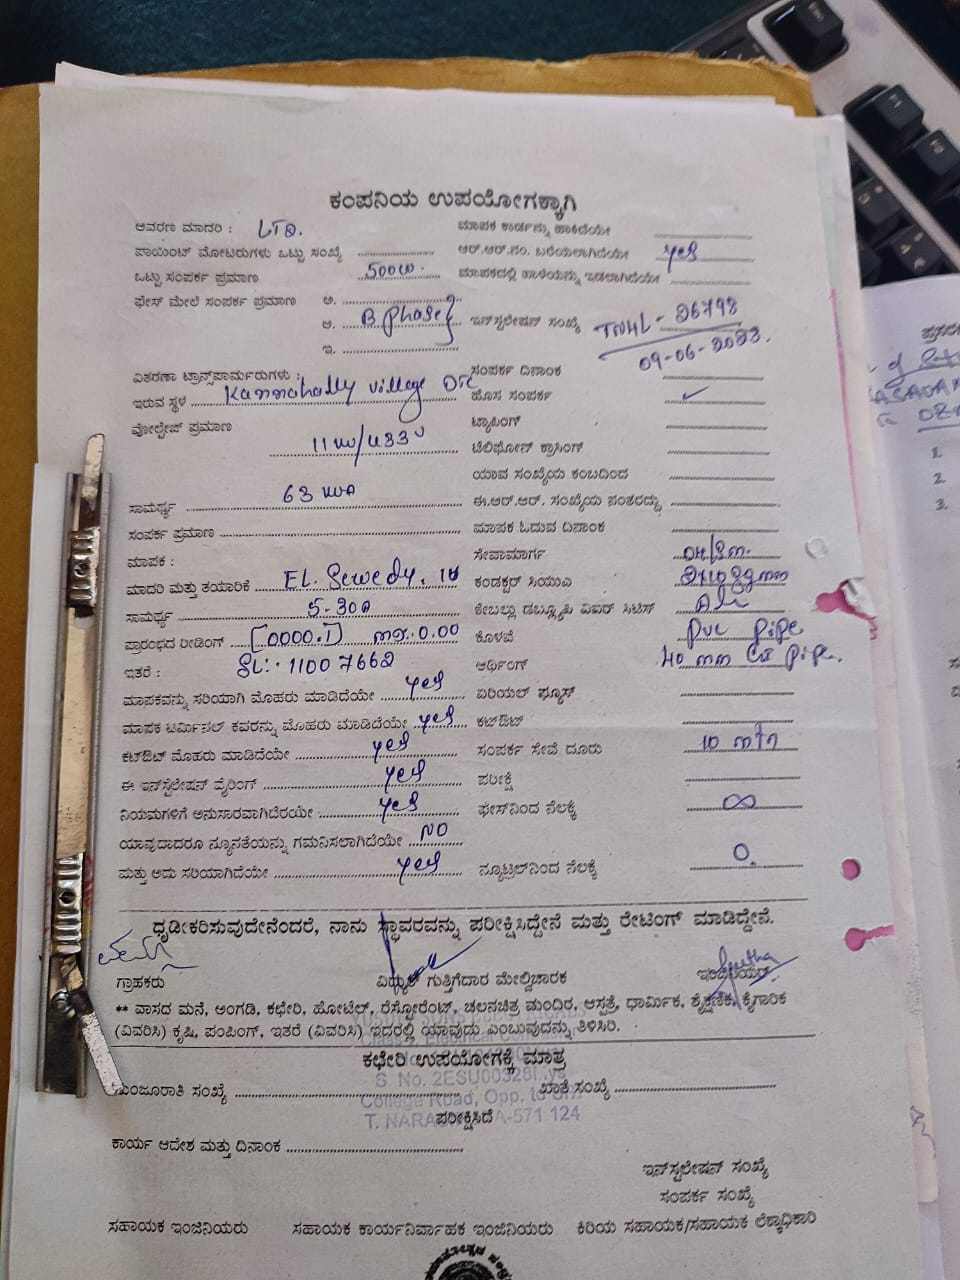 ಕಂಪನಿಯ ಉಪಯೋಗಕ್ಕಾಗಿ
ಆವರಣ ಮಾದರಿ :
ಮಾಪಕ ಕಾರ್ಡನ್ನು ಹಾಕಿದೆಯೇ
ಪಾಯಿಂಟ್ ಮೋಟರುಗಳು ಒಟ್ಟು ಸಂಖ್ಯೆ
ಆರ್.ಆರ್.ನಂ. ಬರೆಯಲಾಗಿದೆಯೇ yes
ಒಟ್ಟು ಸಂಪರ್ಕ ಪ್ರಮಾಣ 500w.
ಮಾಪಕದಲ್ಲಿ ಹಾಳೆಯನ್ನು ಇಡಲಾಗಿದೆಯೇ
ಫೇಸ್ ಮೇಲೆ ಸಂಪರ್ಕ ಪ್ರಮಾಣ ಅ.
ಆ. B phase
ಇನ್‌ಸ್ಟಲೇಷನ್ ಸಂಖ್ಯೆ TNHL-26798
09-06-2023.
ಇ.
ವಿತರಣಾ ಟ್ರಾನ್ಸ್‌ಫಾರ್ಮರುಗಳು :
ಸಂಪರ್ಕ ದಿನಾಂಕ
ಇರುವ ಸ್ಥಳ Kannahally village
ಹೊಸ ಸಂಪರ್ಕ ✓
ವೋಲ್ಟೇಜ್ ಪ್ರಮಾಣ
ಟ್ಯಾಪಿಂಗ್
11 KV/433 V
ಟೆಲಿಫೋನ್ ಕ್ರಾಸಿಂಗ್
ಯಾವ ಸಂಖ್ಯೆಯ ಕಂಬದಿಂದ
ಸಾಮರ್ಥ್ಯ 63 KVA
ಈ.ಆರ್.ಆರ್. ಸಂಖ್ಯೆಯ ನಂತರದ್ದು
ಸಂಪರ್ಕ ಪ್ರಮಾಣ
ಮಾಪಕ ಓದುವ ದಿನಾಂಕ
ಮಾಪಕ :
ಸೇವಾಮಾರ್ಗ
ಮಾದರಿ ಮತ್ತು ತಯಾರಿಕೆ
ಕಂಡಕ್ಟರ್ ಸಿಯುಎ
ಸಾಮರ್ಥ್ಯ 5-30A
ಕೇಬಲ್ಲು ಡಬ್ಲ್ಯೂಪಿ ವಿಐರ್ ಸಿಟಿಸ್
ಪ್ರಾರಂಭದ ರೀಡಿಂಗ್ [0000.1] 0.00
ಕೊಳವೆ PVC pipe
ಇತರೆ : SL:- 11007662
ಅರ್ಥಿಂಗ್ 40 mm GI pipe.
ಮಾಪಕವನ್ನು ಸರಿಯಾಗಿ ಮೊಹರು ಮಾಡಿದೆಯೇ yes
ಏರಿಯಲ್ ಫ್ಯೂಸ್
ಮಾಪಕ ಟರ್ಮಿನಲ್ ಕವರನ್ನು ಮೊಹರು ಮಾಡಿದೆಯೇ yes
ಕಟ್‌ಔಟ್
ಕಟ್‌ಔಟ್ ಮೊಹರು ಮಾಡಿದೆಯೇ yes
ಸಂಪರ್ಕ ಸೇವೆ ದೂರು 10 mtr
ಈ ಇನ್‌ಸ್ಟಲೇಷನ್ ವೈರಿಂಗ್ yes
ಪರೀಕ್ಷೆ
ನಿಯಮಗಳಿಗೆ ಅನುಸಾರವಾಗಿದೆರಯೇ yes
ಫೇಸ್‌ನಿಂದ ನೆಲಕ್ಕೆ ∞
ಯಾವುದಾದರೂ ನ್ಯೂನತೆಯನ್ನು ಗಮನಿಸಲಾಗಿದೆಯೇ NO
ಮತ್ತು ಅದು ಸರಿಯಾಗಿದೆಯೇ yes
ನ್ಯೂಟ್ರಲ್‌ನಿಂದ ನೆಲಕ್ಕೆ 0.
ಧೃಡೀಕರಿಸುವುದೇನೆಂದರೆ, ನಾನು ಸ್ಥಾವರವನ್ನು ಪರೀಕ್ಷಿಸಿದ್ದೇನೆ ಮತ್ತು ರೇಟಿಂಗ್ ಮಾಡಿದ್ದೇನೆ.
ಗ್ರಾಹಕರು ವಿಧ್ಯುತ್ ಗುತ್ತಿಗೆದಾರ ಮೇಲ್ವಿಚಾರಕ ಇಂಜಿನಿಯರ್
** ವಾಸದ ಮನೆ, ಅಂಗಡಿ, ಕಛೇರಿ, ಹೋಟೆಲ್, ರೆಸ್ಟೋರೆಂಟ್, ಚಲನಚಿತ್ರ ಮಂದಿರ, ಆಸ್ಪತ್ರೆ, ಧಾರ್ಮಿಕ, ಶೈಕ್ಷಣಿಕ, ಕೈಗಾರಿಕೆ
(ವಿವರಿಸಿ) ಕೃಷಿ, ಪಂಪಿಂಗ್, ಇತರೆ (ವಿವರಿಸಿ) ಇದರಲ್ಲಿ ಯಾವುದು ಎಂಬುವುದನ್ನು ತಿಳಿಸಿರಿ.
ಕಛೇರಿ ಉಪಯೋಗಕ್ಕೆ ಮಾತ್ರ
ಮಂಜೂರಾತಿ ಸಂಖ್ಯೆ
ಖಾತೆ ಸಂಖ್ಯೆ
S. No. 2ESU00328
College Road, Opp. to
ಪರೀಕ್ಷಿಸಿದೆ
-571 124
ಕಾರ್ಯ ಆದೇಶ ಮತ್ತು ದಿನಾಂಕ
ಇನ್‌ಸ್ಟಲೇಷನ್ ಸಂಖ್ಯೆ
ಸಂಪರ್ಕ ಸಂಖ್ಯೆ
ಸಹಾಯಕ ಇಂಜಿನಿಯರು ಸಹಾಯಕ ಕಾರ್ಯನಿರ್ವಾಹಕ ಇಂಜಿನಿಯರು ಕಿರಿಯ ಸಹಾಯಕ/ಸಹಾಯಕ ಲೆಕ್ಕಾಧಿಕಾರಿ
1.
2.
3.